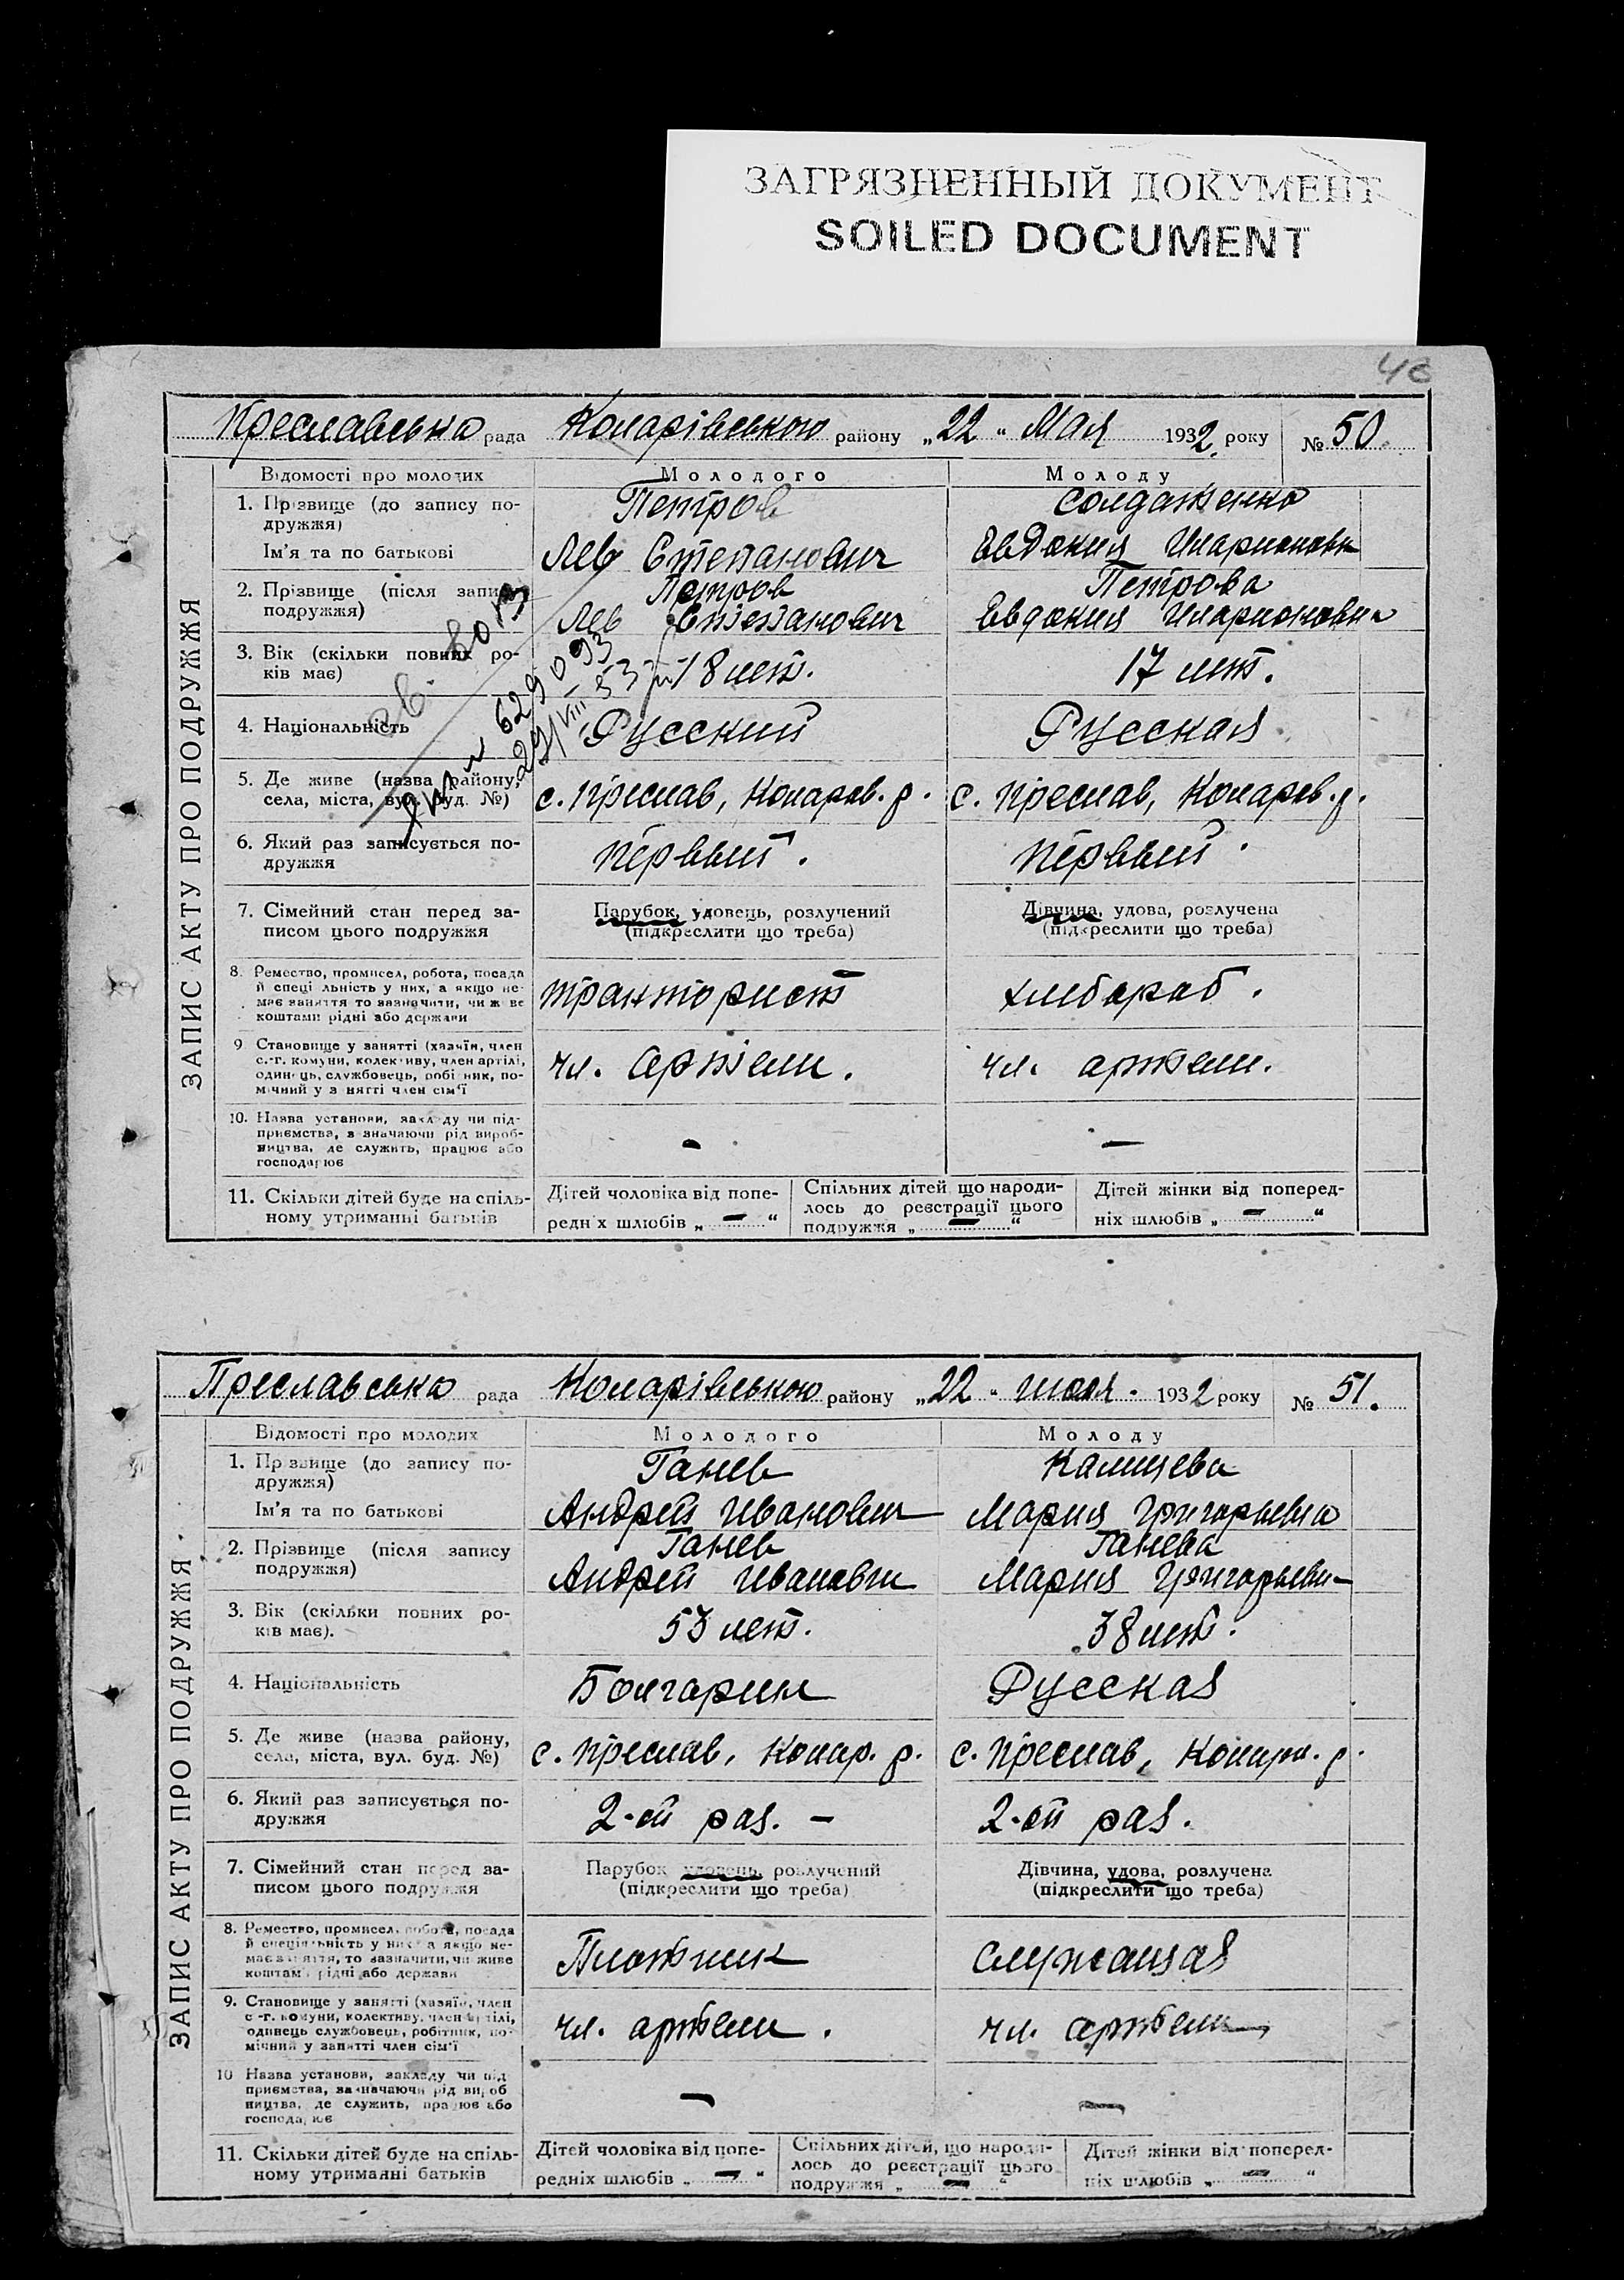 ЗАГРЯЗНЕННЫЙ ДОКУМЕНТ
SOILED DOCUMENT
Преславська рада Коларівською району „22“ Мая 1932 року № 50.
ЗАПИС АКТУ ПРО ПОДРУЖЖЯ
Відомості про молодих Молодого Молоду
1. Прізвище (до запису по-
дружжя)
Петров Солдатенко
Ім'я та по батькові Лев Степанович Евдокия Иларионовн
2. Прізвище (після запису
подружжя)
Петров Петрова
Лев Степанович Евдокия Иларионовна
3. Вік (скільки повних ро-
ків має)
18 лет. 17 лет.
629093
29/VIII-53
4. Національність Русский Русская
5. Де живе (назва району,
села, міста, вул. буд. №)
с. Преслав, Коларов. р. с. Преслав, Колоров. р.
6. Який раз записується по-
дружжя
первый. первый.
7. Сімейний стан перед за-
писом цього подружжя
Парубок, удовець, розлучений
(підкреслити що треба)
Дівчина, удова, розлучена
(підкреслити що треба)
8. Ремество, промисел, робота, посада
й спеціяльність у них, а якщо не-
має заняття то зазначити, чи живе
коштами рідні або держави
тракторист хлебороб.
9 Становище у занятті (хазяїн, член
с.-г. комуни, колективу, член артілі,
одинець, службовець, робітник, по-
мічний у занятті член сім'ї
чл. артели. чл. артели.
10. Назва установи, закладу чи під-
приємства, зазначаючи рід вироб-
ництва, де служить, працює або
господарює
– –
11. Скільки дітей буде на спіль-
ному утриманні батьків
Дітей чоловіка від попе-
редніх шлюбів „ – “
Спільних дітей що народи-
лось до реєстрації цього
подружжя „ – “
Дітей жінки від поперед-
ніх шлюбів „ – “
Преславська рада Коларівською району „22“ мая. 1932 року № 51.
ЗАПИС АКТУ ПРО ПОДРУЖЖЯ
Відомості про молодих Молодого Молоду
1. Прізвище (до запису по-
дружжя)
Ганев
Ім'я та по батькові Андрей Иванович Мария Григорьевна
2. Прізвище (після запису
подружжя)
Ганев Ганева
Андрей Иванович Мария Григорьевн
3. Вік (скільки повних ро-
ків має).
53 лет. 38 лет.
4. Національність Болгарин Русская
5. Де живе (назва району,
села, міста, вул. буд. №)
с. Преслав, Колар. р. с. Преслав, Колар. р.
6. Який раз записується по-
дружжя
2-ой раз. – 2-ой раз.
7. Сімейний стан перед за-
писом цього подружжя
Парубок удовець, розлучений
(підкреслити що треба)
Дівчина, удова, розлучена
(підкреслити що треба)
8. Ремество, промисел, робота, посада
й спеціяльність у них, а якщо не-
має заняття, то зазначити, чи живе
коштами рідні або держави
Плотник служащая
9. Становище у занятті (хазяїн, член
с-г. комуни, колективу, член артілі,
одинець службовець, робітник, по-
мічний у занятті член сім'ї
чл. артели. чл. артели
10 Назва установи, закладу чи під
приємства, зазначаючи рід вироб
ництва, де служить, працює або
господарює
– –
11. Скільки дітей буде на спіль-
ному утриманні батьків
Дітей чоловіка від попе-
редніх шлюбів „ – “
Спільних дітей, що народи-
лось до реєстрації цього
подружжя „ – “
Дітей жінки від поперед-
ніх шлюбів „ – “